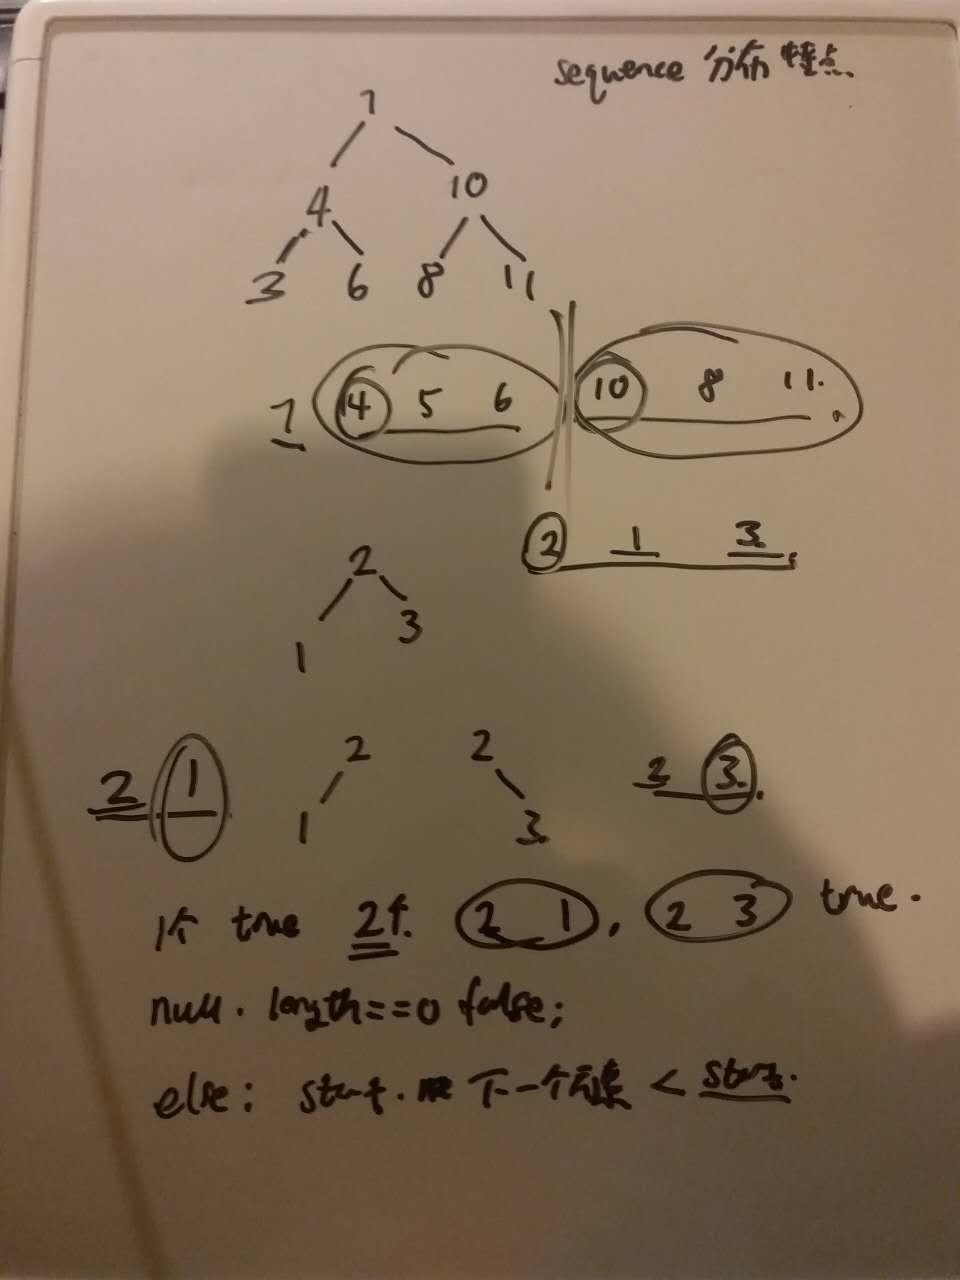 sequence 分布 特点
7
4 10
3 6 8 11
7 4 5 6 10 8 11.
2 1 3.
2
1 3
2 1 2 2 2 3.
1 3
1个 true 2个. 2 1, 2 3 true.
null. length==0 false;
else: start. 下一个元素 < start.